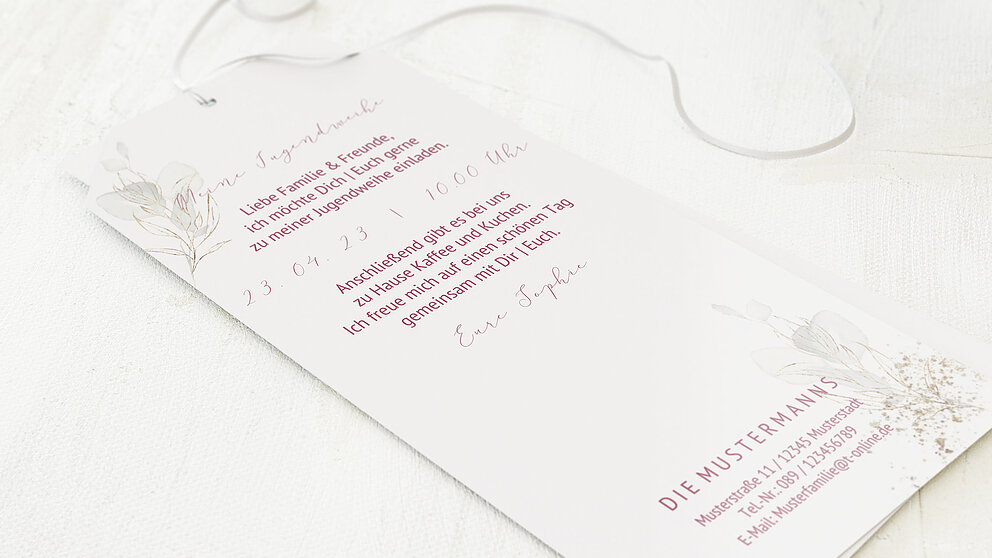 Meine Jugendweihe
Liebe Familie & Freunde,
ich möchte Dich | Euch gerne
zu meiner Jugendweihe einladen.
23. 04. 23 | 10.00 Uhr
Anschließend gibt es bei uns
zu Hause Kaffee und Kuchen.
Ich freue mich auf einen schönen Tag
gemeinsam mit Dir | Euch.
Eure Sophie
DIE MUSTERMANNS
Musterstraße 11 / 12345 Musterstadt
Tel-Nr.: 089 / 123456789
E-Mail: Musterfamilie@t-online.de